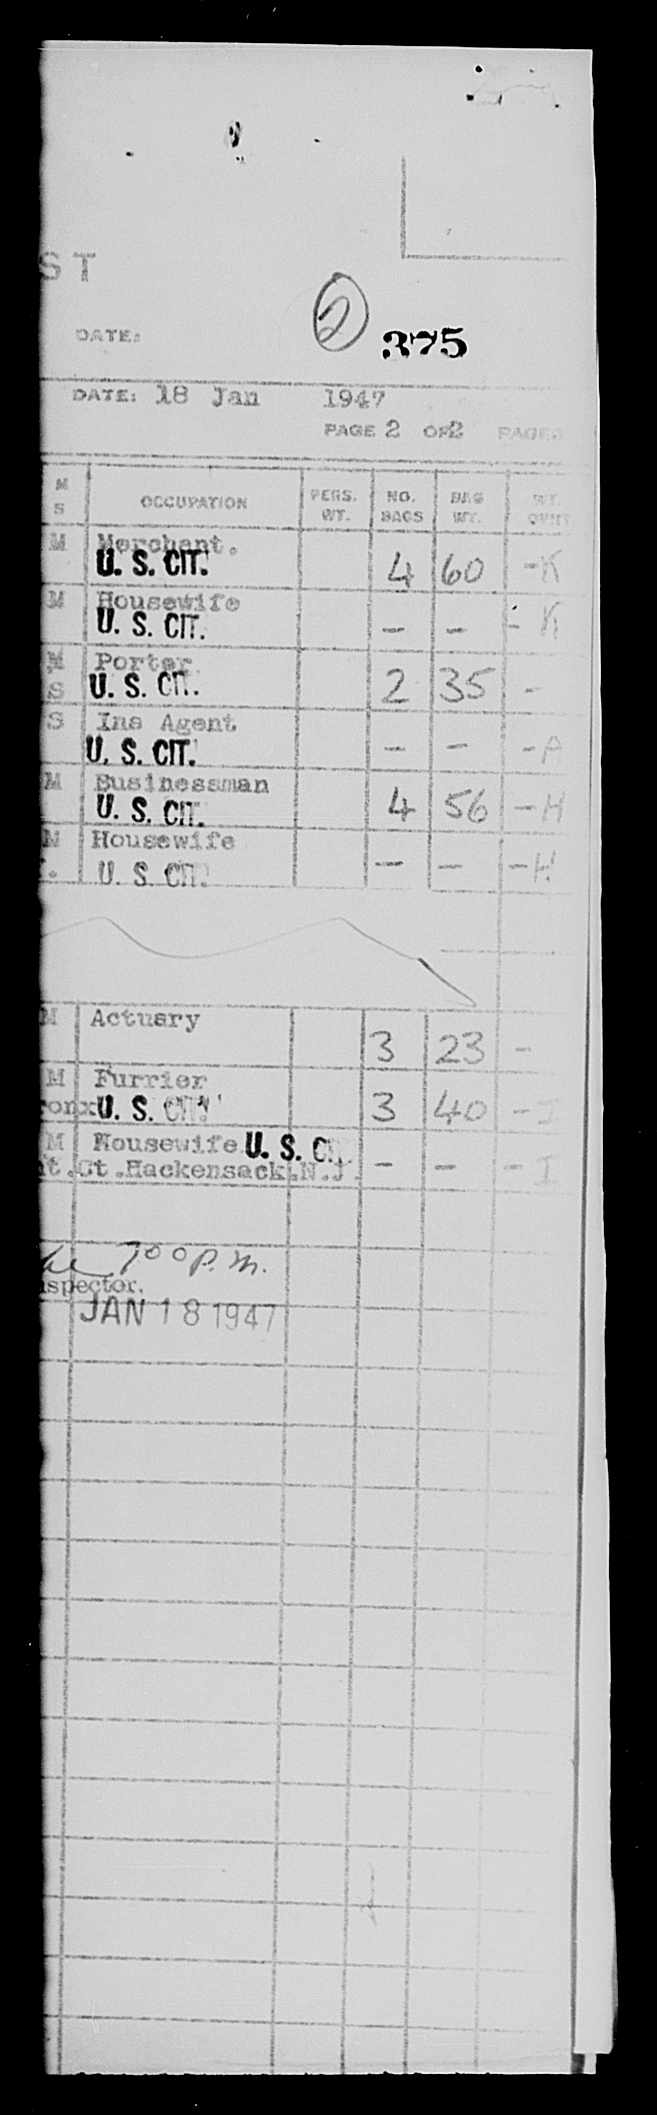 ST
DATE:
2 375
DATE: 18 Jan 1947
PAGE 2 OF 2 PAGES
M S OCCUPATION PERS. WT. NO. BAGS BAG WT. WT. OVHT
M Merchant.
U. S. CIT. 4 60 - K
M Housewife
U. S. CIT. - - - K
M Porter
S U. S. CIT. 2 35 -
S Ins Agent
U. S. CIT. - - - A
M Businessman
U. S. CIT. 4 56 - H
M Housewife
. U. S. CIT. - - - H
M Actuary
3 23 -
M Furrier
ronx U. S. CIT. 3 40 - I
M Housewife U. S. CIT.
t. Ct. Hackensack.N.J. - - - I
700 P.M.
nspector.
JAN 18 1947